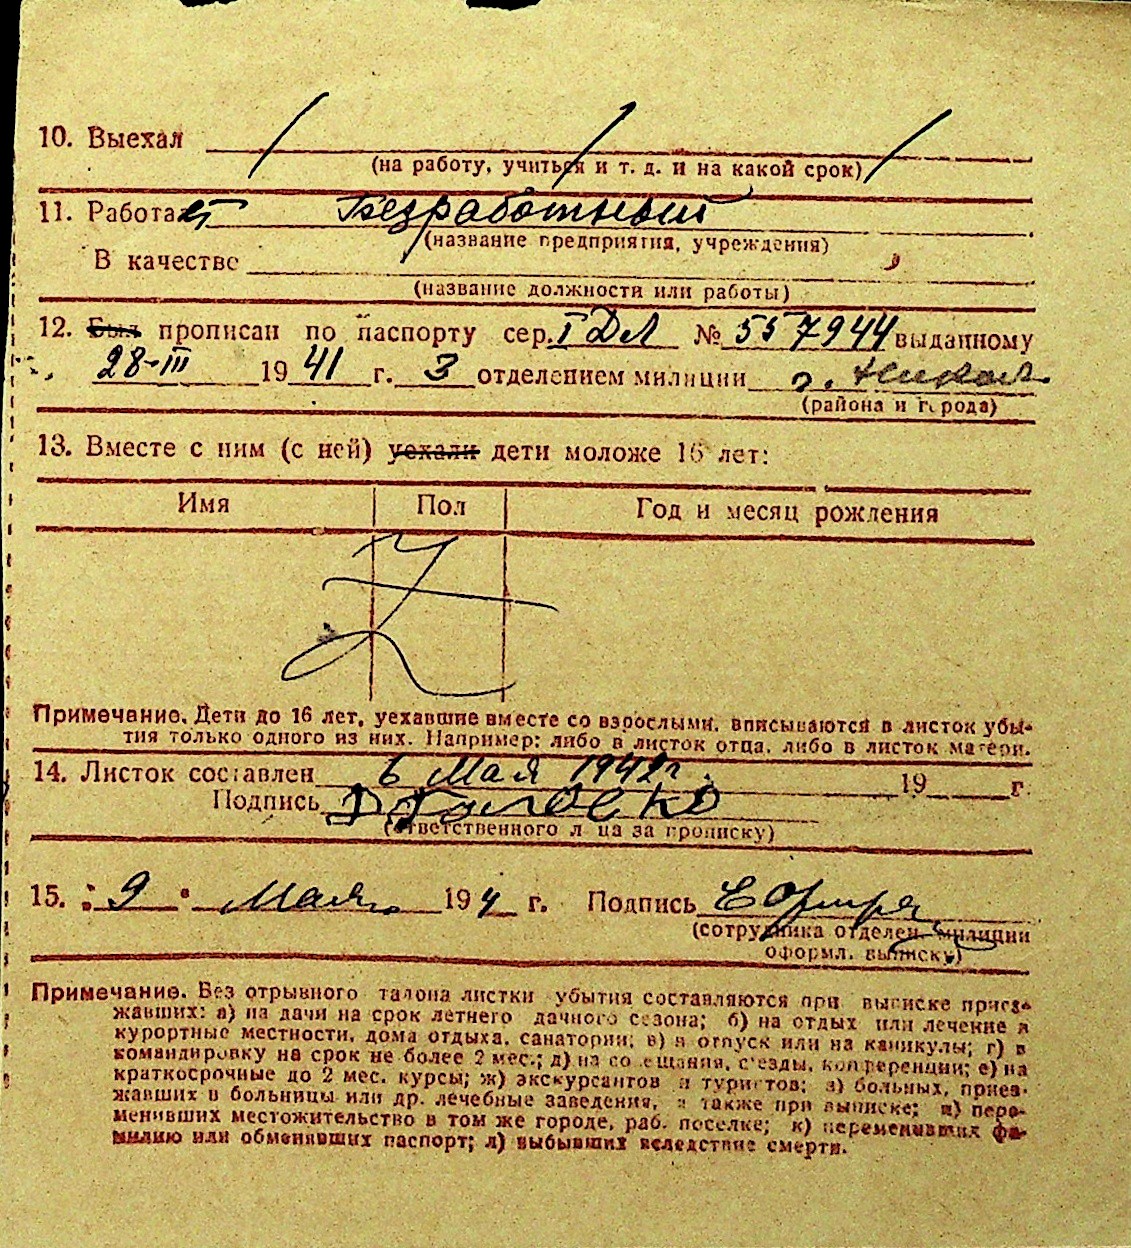 10. Выехал
(на работу, учиться и т. д. и на какой срок)
11. Работает Безработный
(название предприятия, учреждения)
В качестве
(название должности или работы)
12. Был прописан по паспорту сер. I ДЛ № 557944 выданному
28-III 1941 г. 3 отделением милиции г. Никол.
(района и города)
13. Вместе с ним (с ней) уехали дети моложе 16 лет:
Имя Пол Год и месяц рождения
Примечание. Дети до 16 лет, уехавшие вместе со взрослыми, вписываются в листок убы-
тия только одного из них. Например: либо в листок отца, либо в листок матери.
14. Листок составлен 6 Мая 1942 г. 19 г.
Подпись
(ответственного лица за прописку)
15. "9" Мая 194 г. Подпись
(сотрудника отделен. милиции
оформл. выписку)
Примечание. Без отрывного талона листки убытия составляются при выписке приез-
жавших: а) на дачи на срок летнего дачного сезона; б) на отдых или лечение в
курортные местности, дома отдыха, санатории; в) в отпуск или на каникулы; г) в
командировку на срок не более 2 мес.; д) на совещания, с'езды, конференции; е) на
краткосрочные до 2 мес. курсы; ж) экскурсантов и туристов; з) больных, приез-
жавших в больницы или др. лечебные заведения, а также при выписке; и) пере-
менивших местожительство в том же городе, раб. поселке; к) переменивших фа-
милию или обменивших паспорт; л) выбывших вследствие смерти.